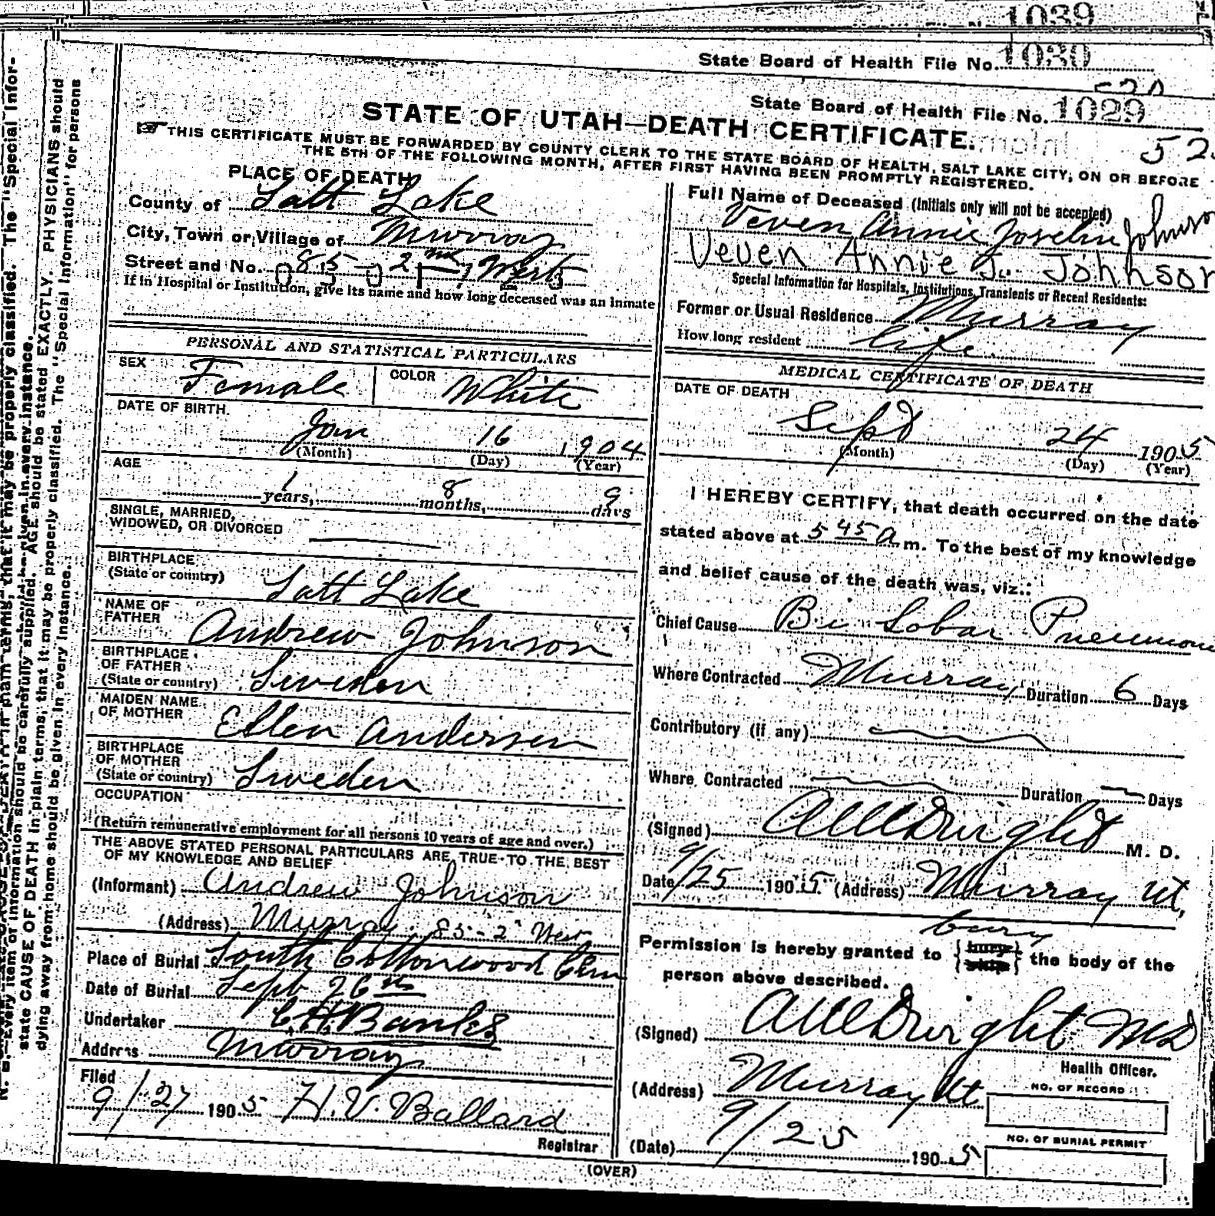 1039
State Board of Health File No. 1030
State Board of Health File No. 1029
STATE OF UTAH—DEATH CERTIFICATE.
THIS CERTIFICATE MUST BE FORWARDED BY COUNTY CLERK TO THE STATE BOARD OF HEALTH, SALT LAKE CITY, ON OR BEFORE
THE 5TH OF THE FOLLOWING MONTH, AFTER FIRST HAVING BEEN PROMPTLY REGISTERED.
PLACE OF DEATH
County of Salt Lake
City, Town or Village of Murray
Street and No. 85 2nd West
If in Hospital or Institution, give its name and how long deceased was an inmate
PERSONAL AND STATISTICAL PARTICULARS
SEX Female COLOR White
DATE OF BIRTH
Jan 16 1904
(Month) (Day) (Year)
AGE
1 years, 8 months, 9 days
SINGLE, MARRIED,
WIDOWED, OR DIVORCED
BIRTHPLACE
(State or country) Salt Lake
NAME OF
FATHER Andrew Johnson
BIRTHPLACE
OF FATHER
(State or country) Sweden
MAIDEN NAME
OF MOTHER Ellen Andersen
BIRTHPLACE
OF MOTHER
(State or country) Sweden
OCCUPATION
(Return remunerative employment for all persons 10 years of age and over.)
THE ABOVE STATED PERSONAL PARTICULARS ARE TRUE TO THE BEST
OF MY KNOWLEDGE AND BELIEF
(Informant) Andrew Johnson
(Address) Murray 85-2" West
Place of Burial South Cottonwood Cem
Date of Burial Sept 26th
Undertaker C.H. Banks
Address Murray
Filed
9/27 1905 H.V. Ballard
Registrar
(OVER)
Full Name of Deceased (Initials only will not be accepted)
Veven Annie Joselin Johnson
Veven Annie J. Johnson
Special Information for Hospitals, Institutions, Transients or Recent Residents:
Former or Usual Residence Murray
How long resident life
MEDICAL CERTIFICATE OF DEATH
DATE OF DEATH
Sept 24 1905
(Month) (Day) (Year)
I HEREBY CERTIFY, that death occurred on the date
stated above at 5 45 a m. To the best of my knowledge
and belief cause of the death was, viz::
Chief Cause Bi Lobar Pneumonia
Where Contracted Murray Duration 6 Days
Contributory (if any)
Where Contracted Duration Days
(Signed) M. D.
Date 9/25 1905 (Address) Murray Ut,
bury
Permission is hereby granted to {bury ship} the body of the
person above described.
(Signed) MD
Health Officer.
(Address) Murray Ut
NO. OF RECORD
(Date) 9/25 1905
NO. OF BURIAL PERMIT
state CAUSE OF DEATH in plain terms, that it may be properly classified. The "Special Information" for persons
dying away from home should be given in every instance.